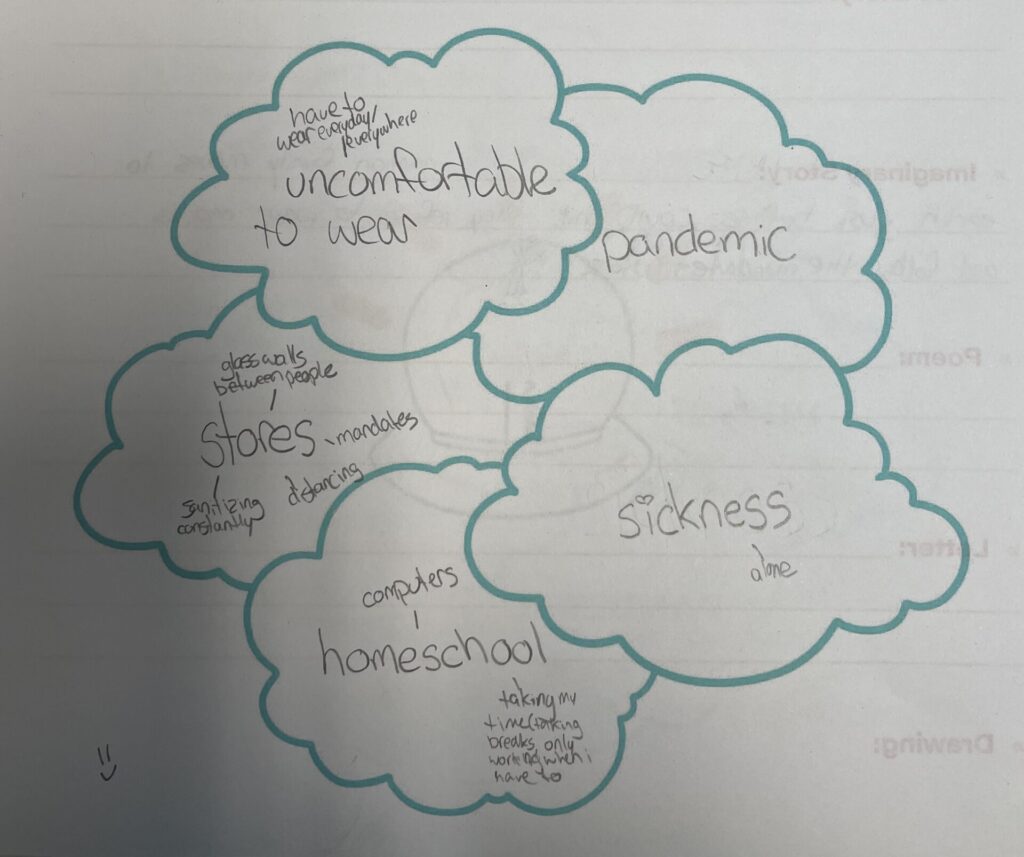 have to
wear everyday/
everywhere
uncomfortable
to wear
pandemic
glass walls
between people
stores
mandates
distancing
sanitizing
constantly
sickness
alone
computers
homeschool
taking my
time/taking
breaks, only
working when i
have to
Imaginary Story:
Poem:
Letter:
Drawing: